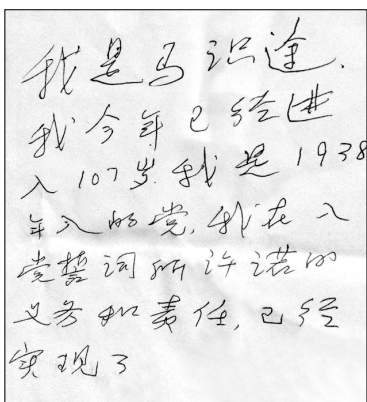 我是马识途,
我今年已经进
入107岁,我是1938
年入的党,我在入
党誓词所许诺的
义务和责任,已经
实现了